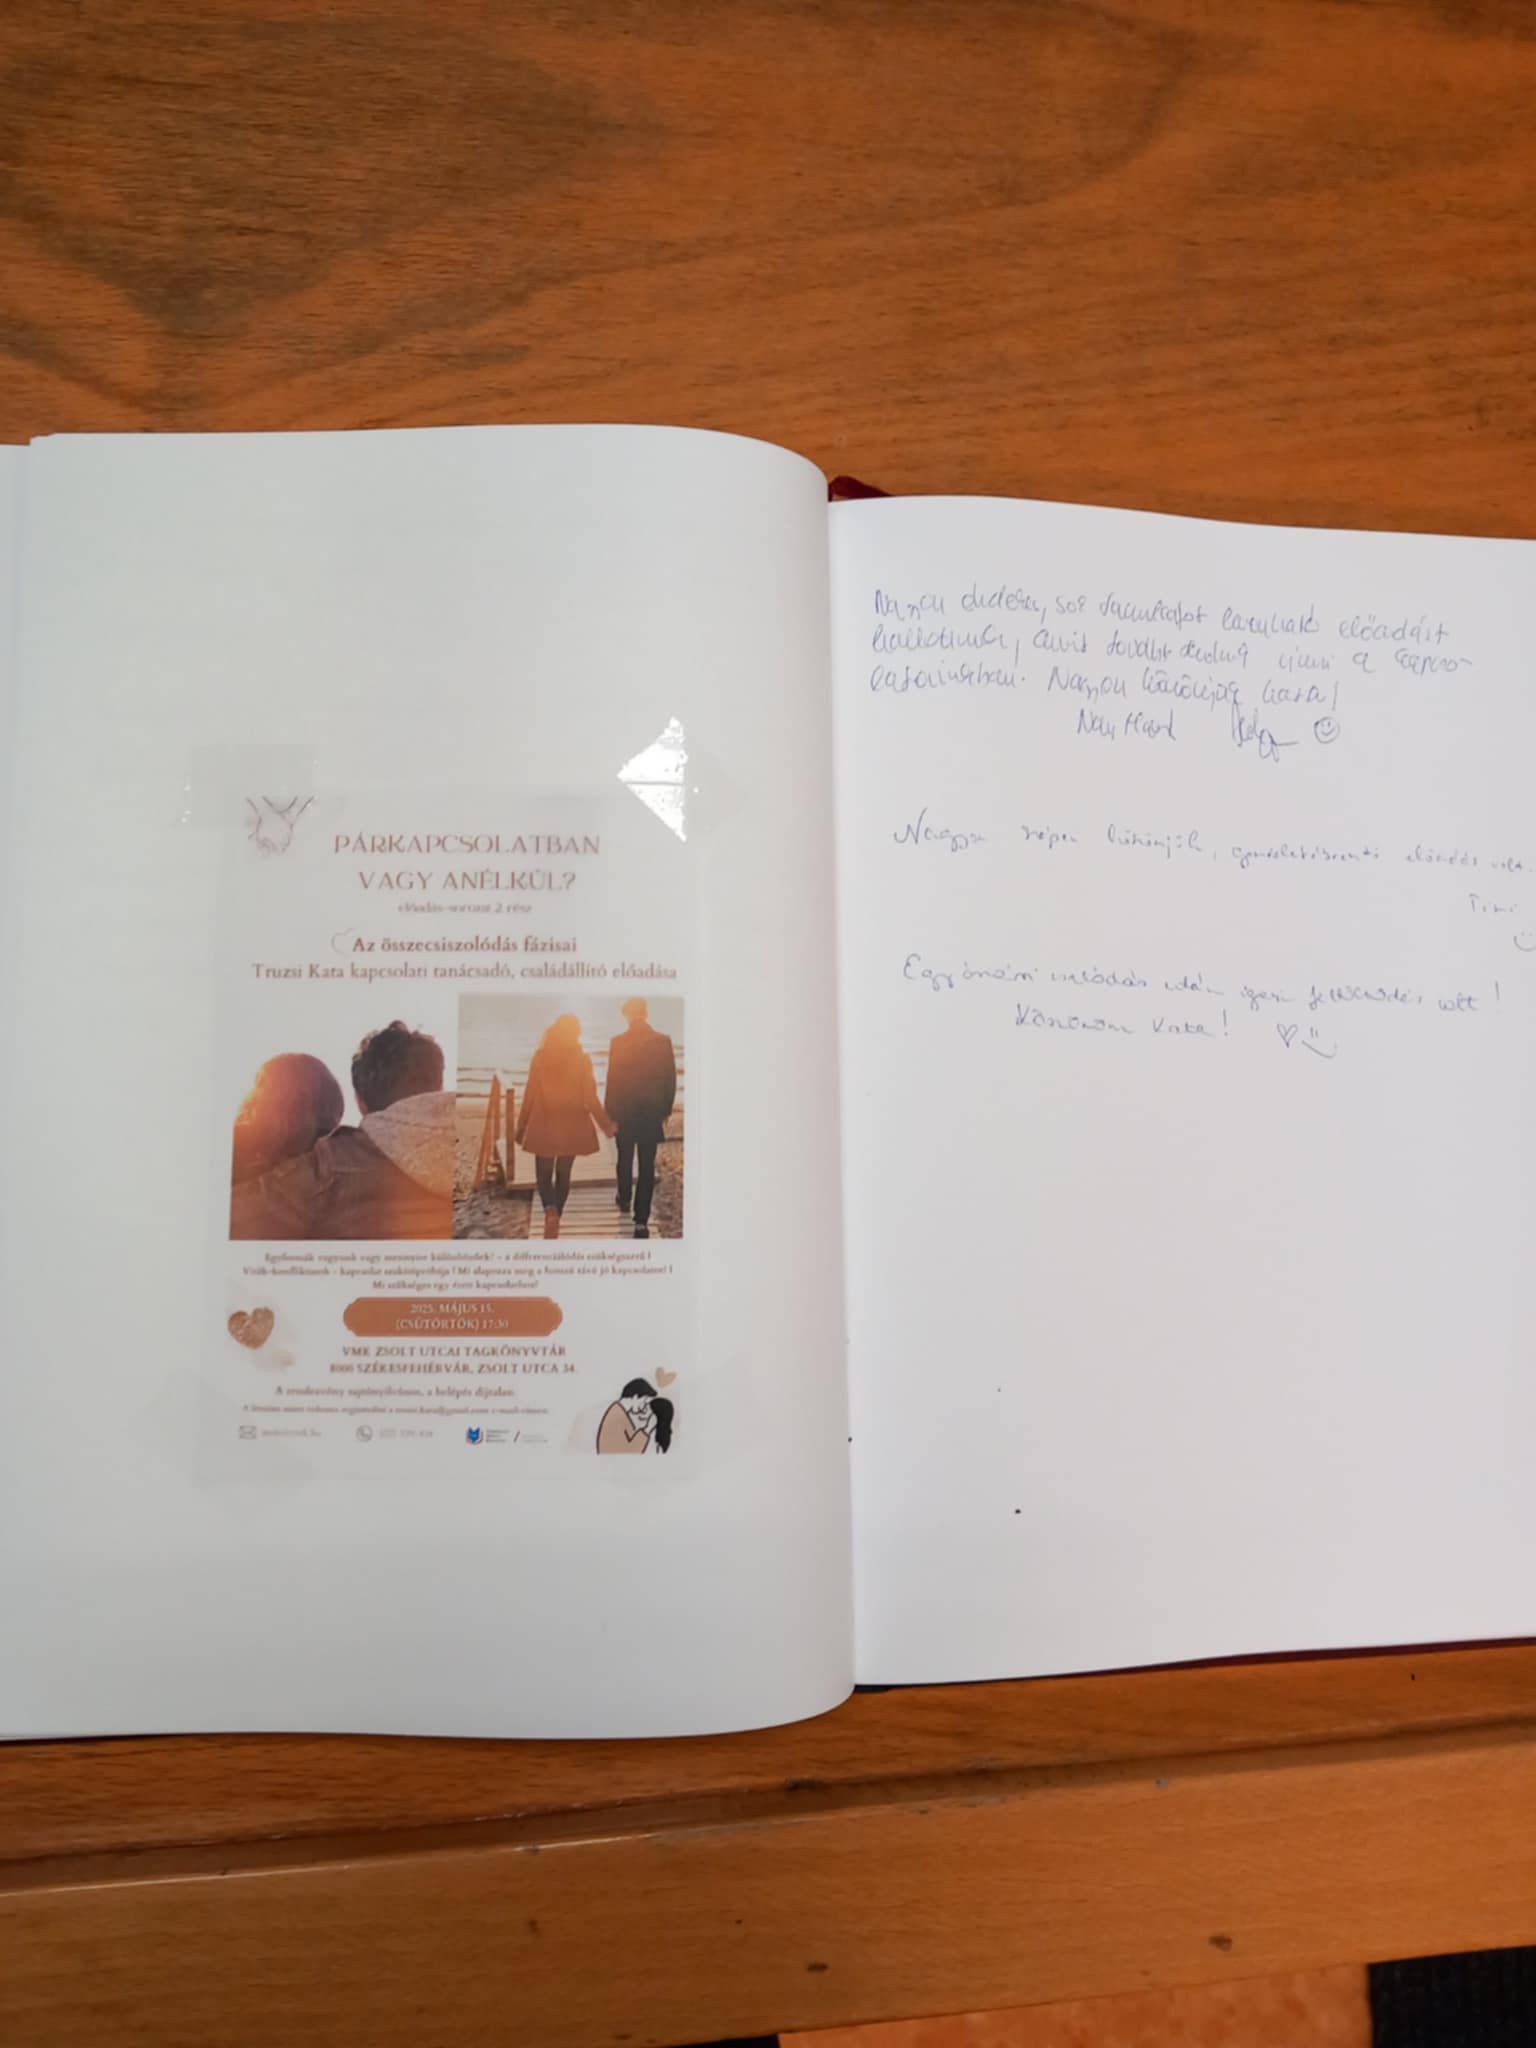 PÁRKAPCSOLATBAN
VAGY ANÉLKÜL?
előadás-sorozat 2 rész
Az összecsiszolódás fázisai
Truzsi Kata kapcsolati tanácsadó, családállító előadása
Egyformák vagyunk vagy mennyire különbözőek? – a differenciálódás szükségszerű !
Viták-konfliktusok – kapcsolat szakítópróbája ! Mi alapozza meg a hosszú távú jó kapcsolatot? !
Mi szükséges egy érett kapcsolathoz?
2025. MÁJUS 15.
(CSÜTÖRTÖK) 17:30
VMK ZSOLT UTCAI TAGKÖNYVTÁR
8000 SZÉKESFEHÉRVÁR, ZSOLT UTCA 34.
A rendezvény sajtónyilvános, a belépés díjtalan.
Nagyon érdekes, sok előadást
hallottunk, amit tovább tudunk vinni a kapcso-
latainkban. Nagyon köszönjük Kata!
Nagyon szépen köszönjük, előadás volt.
Timi
Egy csalódás után igazi volt!
Köszönöm Kata!